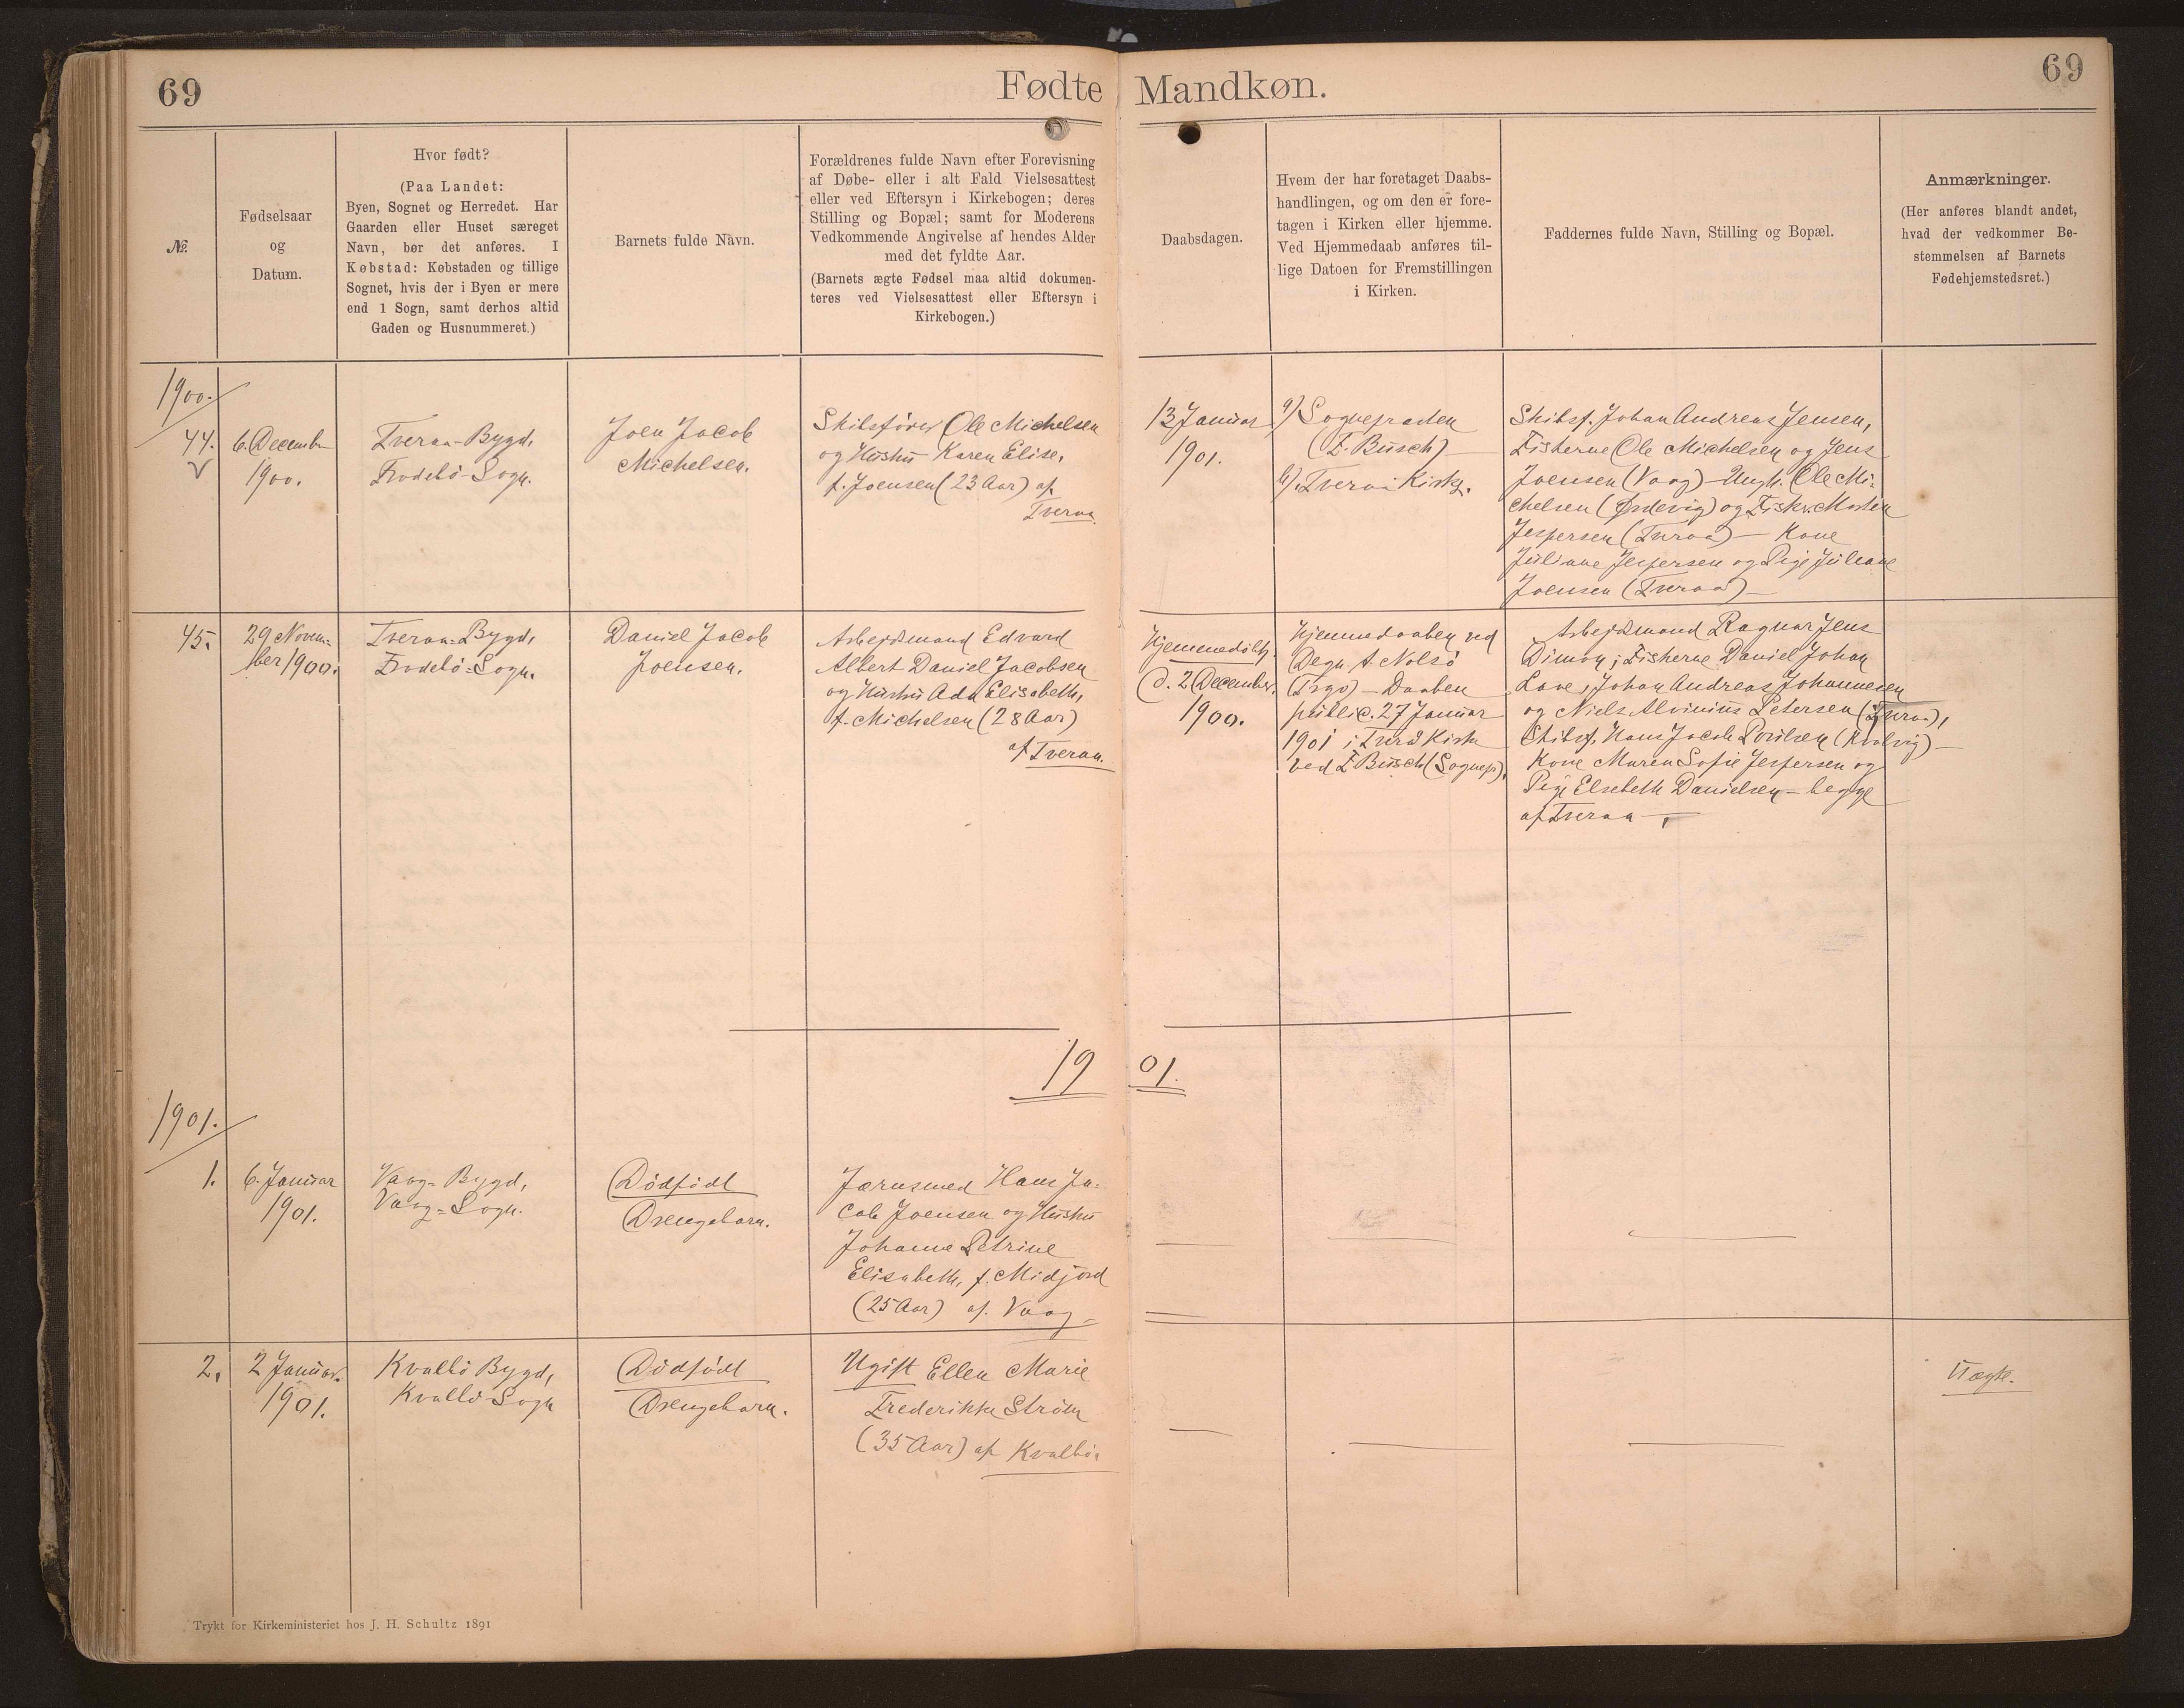 69
Fødte Mandkøn.
69
№
Fødselsaar
og
Datum.
Hvor født?
(Paa Landet:
Byen, Sognet og Herredet. Har
Gaarden eller Huset særeget
Navn, bør det anføres. I
Købstad: Købstaden og tillige
Sognet, hvis der i Byen er mere
end 1 Sogn, samt derhos altid
Gaden og Husnummeret.)
Barnets fulde Navn.
Forældrenes fulde Navn efter Forevisning
af Døbe- eller i alt Fald Vielsesattest
eller ved Eftersyn i Kirkebogen; deres
Stilling og Bopæl; samt for Moderens
Vedkommende Angivelse af hendes Alder
med det fyldte Aar.
(Barnets ægte Fødsel maa altid dokumen-
teres ved Vielsesattest eller Eftersyn i
Kirkebogen.)
Daabsdagen.
Hvem der har foretaget Daabs-
handlingen, og om den er fore-
tagen i Kirken eller hjemme.
Ved Hjemmedaab anføres til-
lige Datoen for Fremstillingen
i Kirken.
Faddernes fulde Navn, Stilling og Bopæl.
Anmærkninger.
(Her anføres blandt andet,
hvad der vedkommer Be-
stemmelsen af Barnets
Fødehjemstedsret.)
1900.
44.
6. Decemb
1900.
Tveraa-Bygd,
Frodebö-Sogn.
Joen Jacob
Michelsen.
Skibsfører Ole Michelsen
og Hustru Karen Elise,
f. Joensen (23 Aar) af
Tveraa
13 Januar
1901.
a) Sognepræsten
(F. Busch)
b). Tveraa Kirke.
Skibsf. Johan Andreas Jensen,
Fiskerne Ole Michelsen og Jens
Joensen (Vaag) - Ungk. Ole Mi-
chelsen (Ördevig) og Fisker Morten
Jespersen (Tveraa) - Kone
Juliane Jespersen og Pige Juliane
Joensen (Tveraa) -
45.
29 Novem-
ber 1900.
Tveraa-Bygd,
Frodebö-Sogn.
Daniel Jacob
Joensen.
Arbejdsmand Edvard
Albert Daniel Jacobsen
og Hustru Ada Elisabeth,
f. Michelsen (28 Aar)
af Tveraa.
Hjemmedöbt
d. 2 December
1900.
Hjemmedaaben ved
Degn A. Nolsö
(Trgv) - Daaben
public. 27 Januar
1901 i Tveraa Kirke
ved F Busch (Sognep).
Arbejdsmand Ragnar Jens
Dimon; Fiskerne Daniel Johan
Lave, Johan Andreas Johannesen
og Niels Alvinius Petersen (Tveraa),
Skibsf. Hans Jacob Poulsen (Hvalvig) -
Kone Maren Sofie Jespersen og
Pige Elsebeth Danielsen - begge
af Tveraa -
1901.
1901.
1.
6. Januar
1901.
Vaag-Bygd,
Vaag-Sogn.
Dödfödt
Drengebarn.
Jernsmed Hans Ja-
cob Joensen og Hustru
Johanne Petrine
Elisabeth, f. Midjord
(25 Aar) af Vaag -
2.
2 Januar
1901.
Kvalbö Bygd,
Kvalbö-Sogn
Dödfödt
Drengebarn.
Ugift Ellen Marie
Frederikke Ström
(35 Aar) af Kvalbö.
Uægte.
Trykt for Kirkeministeriet hos J. H. Schultz 1891